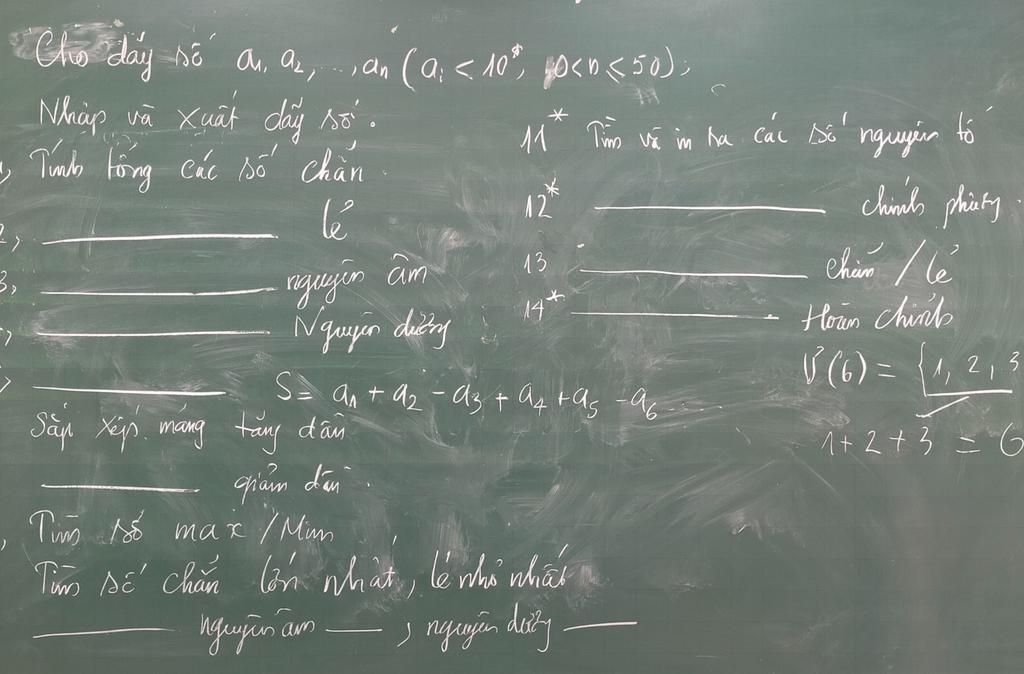 Cho dãy số a1, a2, ..., an (ai < 10*, 0<n≤50);
Nhập và xuất dãy số.
Tính tổng các số chẵn.
2, ———— lẻ
3, ———— nguyên âm
, ———— Nguyên dương
, ———— S = a1 + a2 - a3 + a4 + a5 - a6 ....
Sắp xếp mảng tăng dần
———— giảm dần
, Tìm số max / Min
Tìm số chẵn lớn nhất, lẻ nhỏ nhất
———— nguyên âm —— , nguyên dương ——
11* Tìm và in ra các số nguyên tố
12* ———— chính phương.
13 ———— chẵn / lẻ
14* ———— Hoàn chỉnh
Ư(6) = {1, 2, 3
1+2+3 = 6